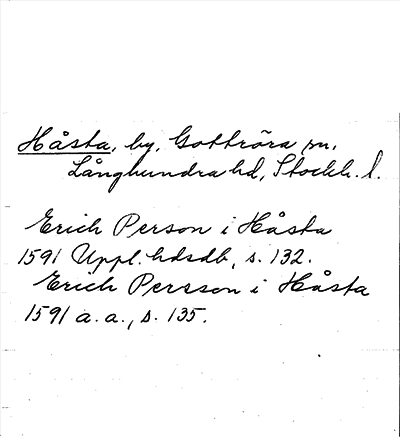 Håsta, by, Gottröra sn,
Långhundra hd, Stockh. l.
Erich Person i Håsta
1591 Uppl. hdsdb, s. 132.
Erich Persson i Håsta
1591 a. a., s. 135.